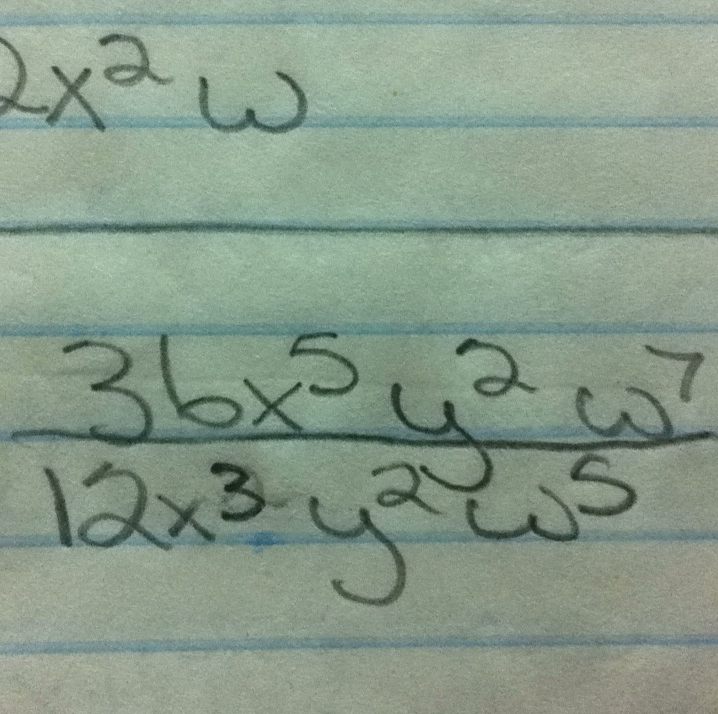 2x² w
36x⁵ y² w⁷
12x³ y² w⁵